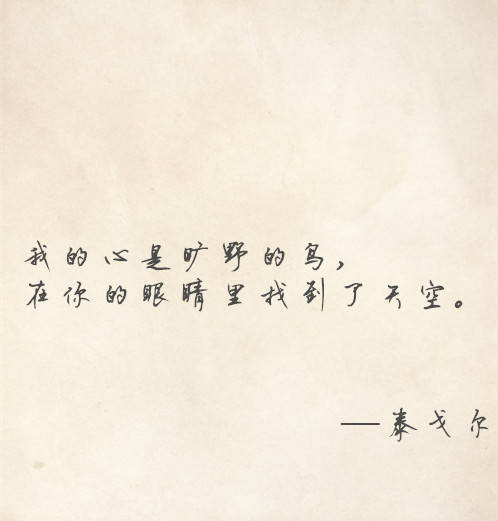 我的心是旷野的鸟，
在你的眼睛里找到了天空。
——泰戈尔